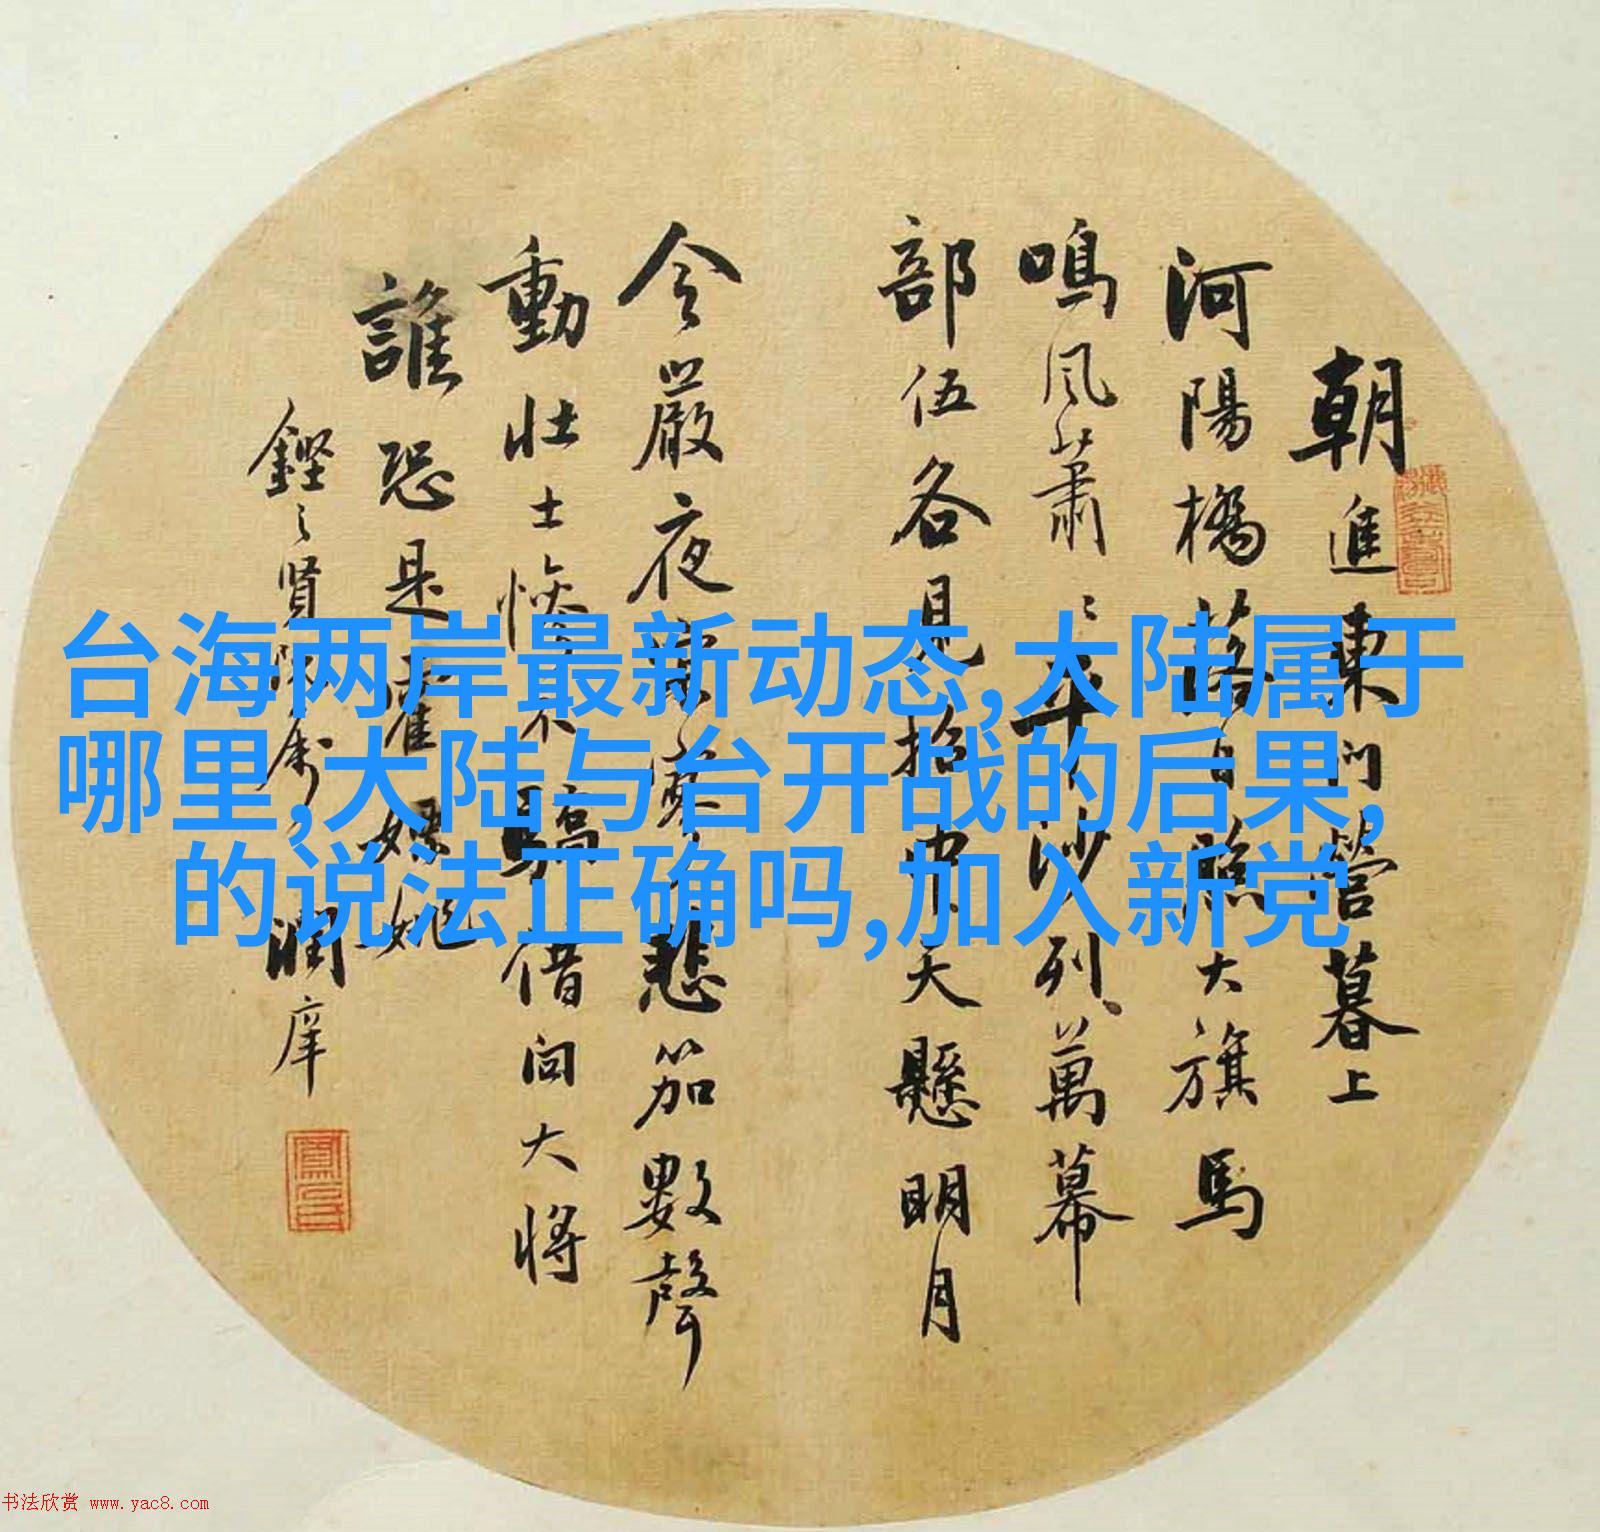 朝進東門營暮上
河陽橋落日照大旗馬
鳴風蕭〻平沙列萬幕
部伍各見招中天懸明月
令嚴夜寂寥悲笳數聲
動壯士慘不驕借問大將
誰恐是霍嫖姚
潤庠
台海两岸最新动态,大陆属于
哪里,大陆与台开战的后果,
的说法正确吗,加入新党
书法欣赏 www.yac8.com